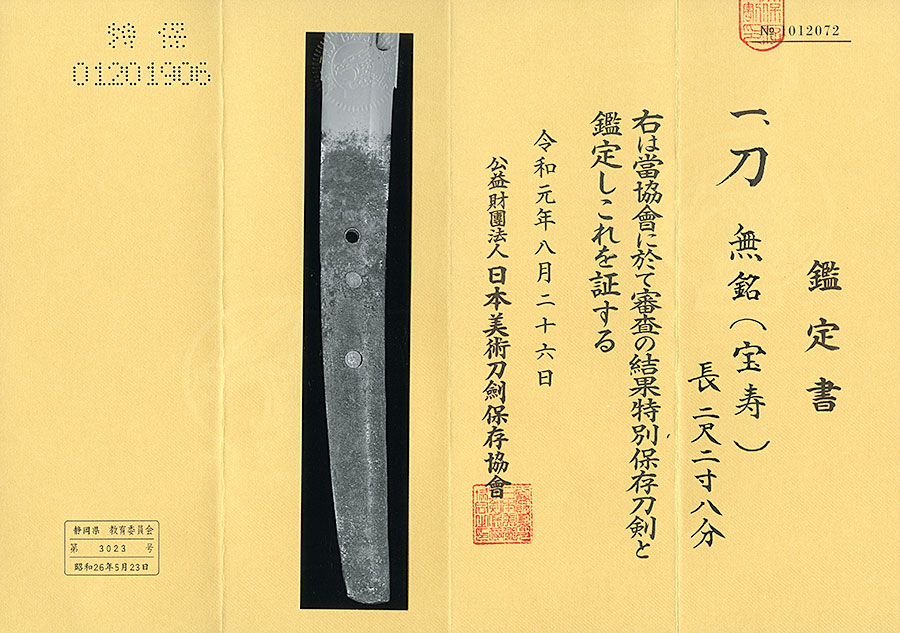 № 1012072
鑑定書
一、刀 無銘(宝寿)
長 二尺二寸八分
右は當協會に於て審査の結果特別保存刀剣と
鑑定しこれを証する
令和元年八月二十六日
公益財團法人 日本美術刀劍保存協會
特保
01201906
静岡県 教育委員会
第 3023 号
昭和26年5月23日